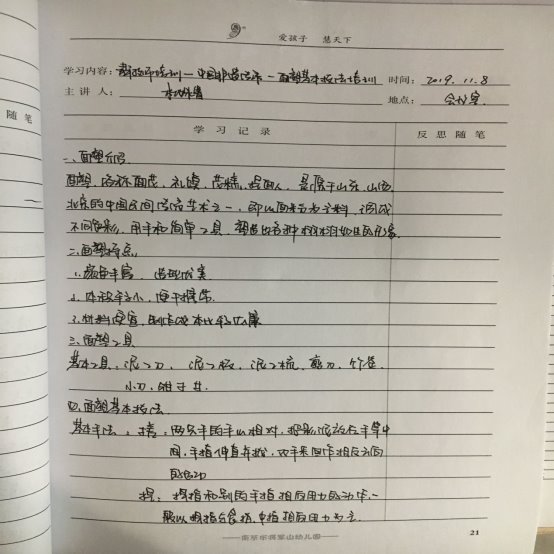 爱孩子 慧天下
学习内容：教师培训—中国非遗—面塑基本技法培训 时间：2019.11.8
主讲人： 地点：会议室
随笔
学习记录 反思随笔
一、面塑介绍
面塑，俗称面花、礼馍、花糕、捏面人，是源于山东、山西、
北京的中国民间传统艺术之一，即以面粉为主料，调成
不同色彩，用手和简单工具，塑造出各种栩栩如生的形象
二、面塑特点
1、题材丰富，造型优美
2、体积较小，便于携带
3、材料便宜，制作成本比较低廉
三、面塑工具
基本工具：泥工刀，泥工板，泥工杭，剪刀，竹签
小刀，钳子等
四、面塑基本技法
基本手法：搓：两只手的手心相对，把彩泥放在手掌中
间，手指伸直并拢，双手来回作相反方向
的运动
捏：拇指和别的手指相反用力的动作，一
般以拇指与食指、中指相反用力为主
南京东将军山幼儿园
21